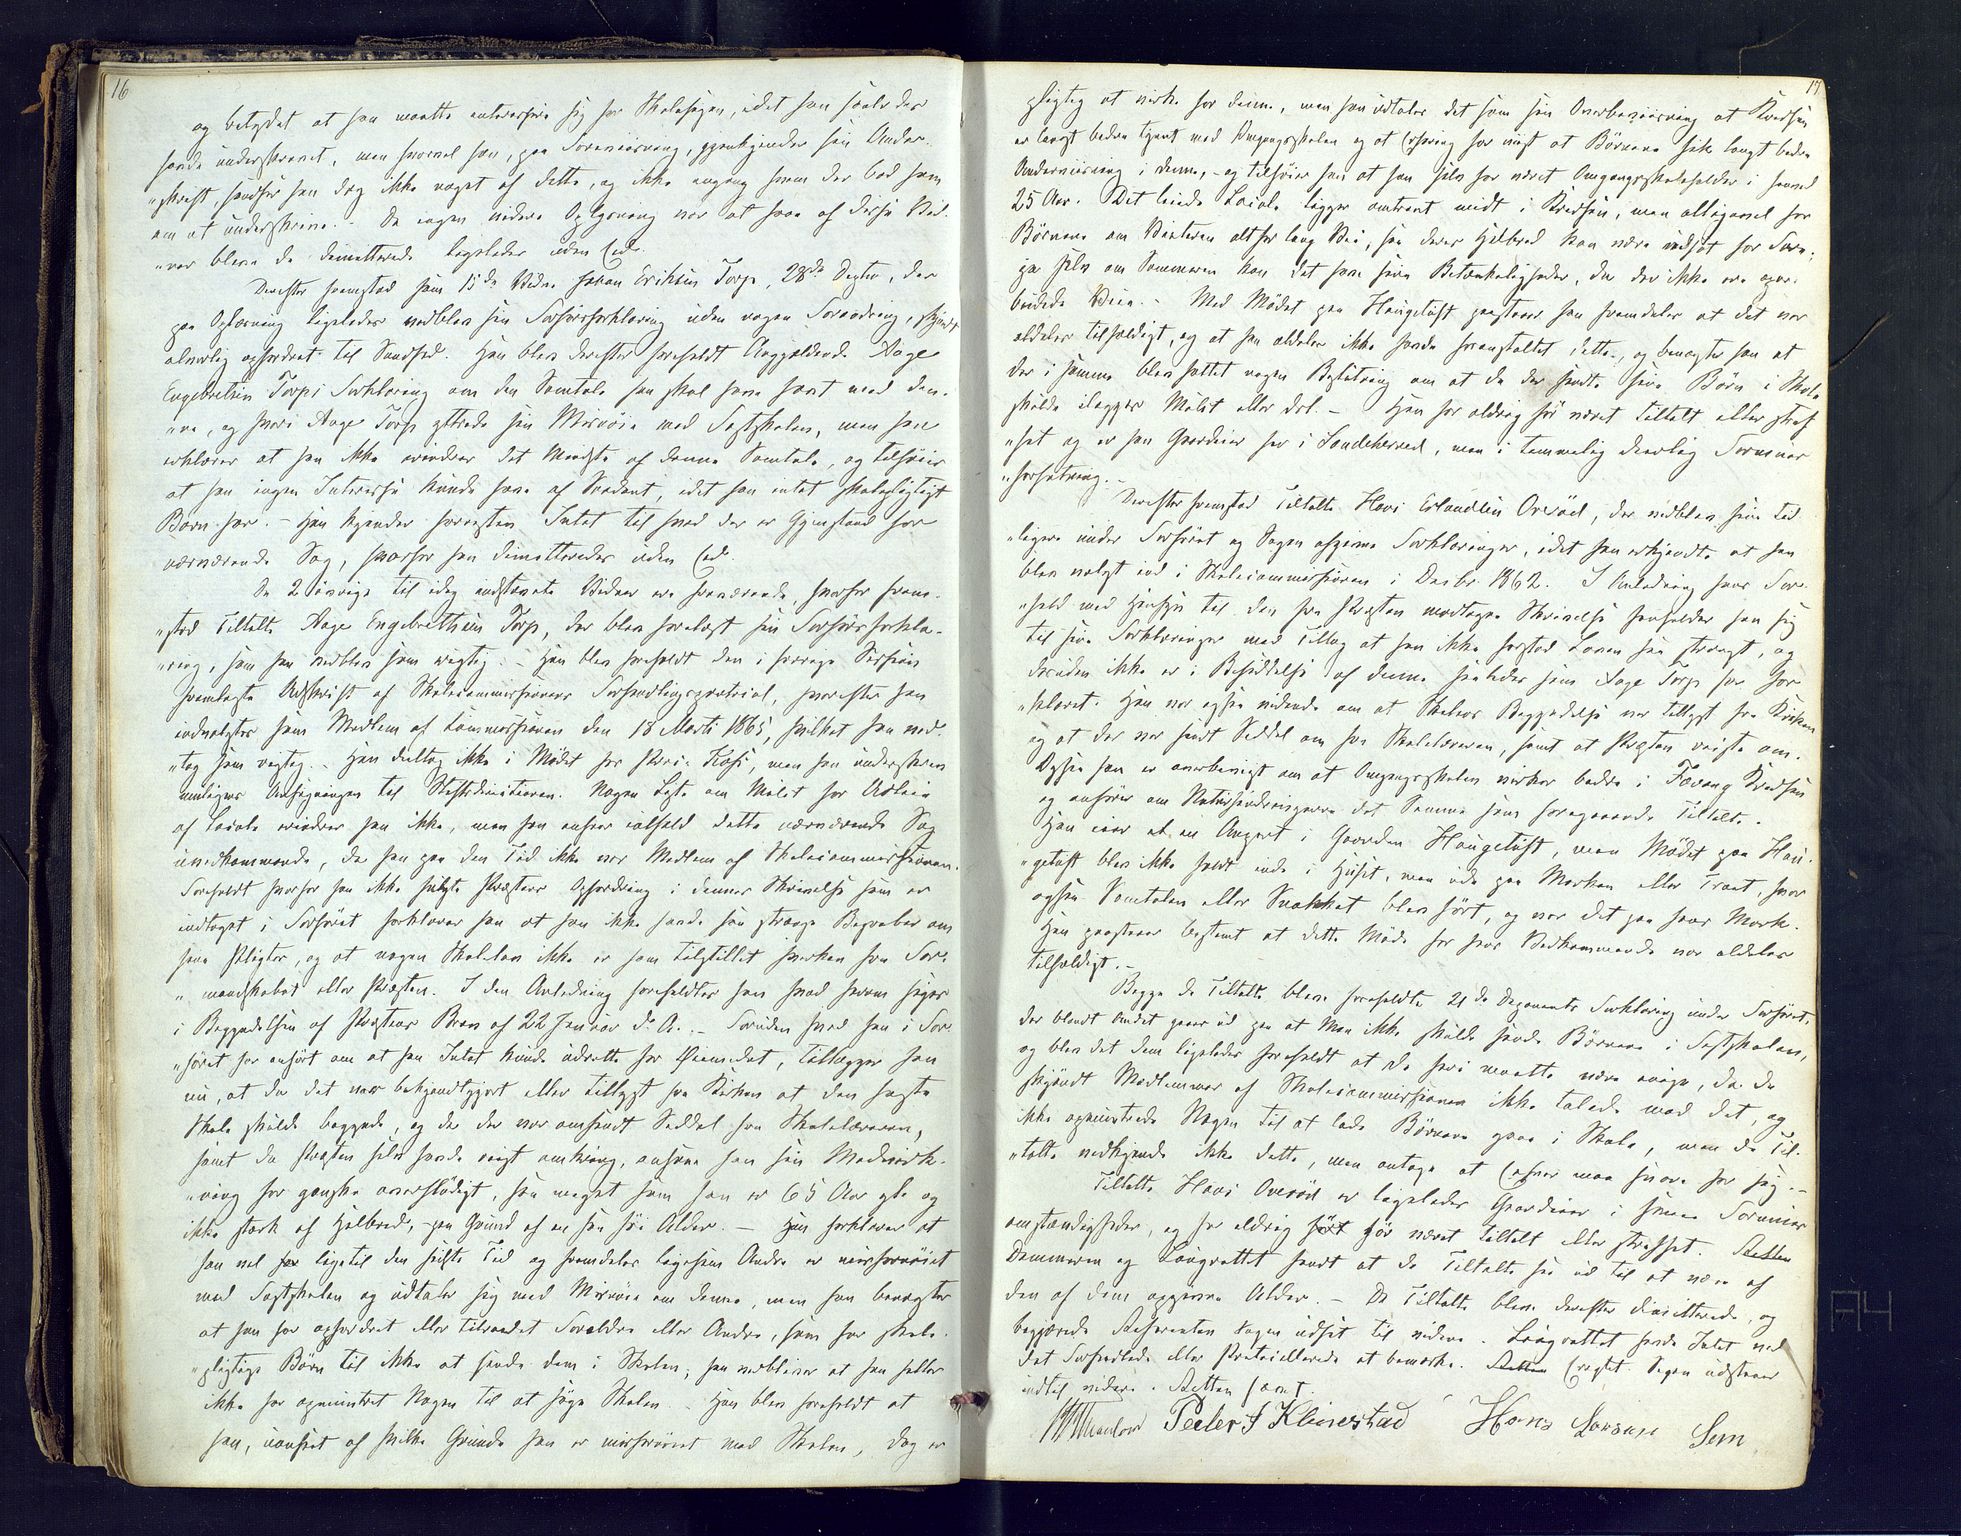 16
og betydet at han maatte interessere sig for Skolesagen, idet han saaledes
havde underskrevet, men hvorvel han, paa Foreviisning, gjenkjender sin Under-
"skrift, husker han dog ikke noget af dette, og ikke engang hvem der bad ham
om at underskrive. Da ingen videre Oplysning var at faae af disse Vid-
"ner bleve de dimitterede ligeledes uden Ed.
Derefter fremstod som 15de Vidne Johan Eriksen Torp, 28de Deptr, der
paa Oplæsning ligeledes vedblev sin Forhørsforklaring uden nogen Forandring, skjøndt
alvorlig opfordret til Sandhed. Han blev derefter foreholdt Angjældende Aage
Engebretsen Torps Forklaring om den Samtale han skal have havt med den-
"ne, og hvori Aage Torp yttrede sin Misnøie med Fastskolen, men han
erklærer at han ikke erindrer det Mindste af denne Samtale, og tilføier
at han ingen Interesse kunde have af Saadant, idet han intet skolepligtigt
Barn har. - Han kjender forresten Intet til hvad der er Gjenstand for
nærværende Sag, hvorfor han dimitteredes uden Ed.
De 2 øvrige til idag indstævnte Vidner ere fraværende, hvorfor frem-
"stod Tiltalte Aage Engebrethsen Torp, der blev forelæst sin Forhørsforkla-
"ring, som han vedblev som rigtig. - Han blev foreholdt den i forrige Session
fremlagte Udskrift af Skolecommissionens Forhandlingsprotocol, hvorefter han
indvalgtes som Medlem af Commissionen den 18 Marts 1865, hvilket han ved-
"tog som rigtig. - Han deltog ikke i Mødet hos Maria Kose, men han underskrev
rimeligvis Ansøgningen til Stiftsdirectionen. Nogen Liste om Mulct for Udleie
af Locale erindrer han ikke, men han anseer ialfald dette nærværende Sag
uvedkommende, da han paa den Tid ikke var Medlem af Skolecommissionen.
Foreholdt hvorfor han ikke fulgte Præstens Opfordring i dennes Skrivelse som er
indtaget i Forhøret forklarer han at han ikke havde saa strænge Begreber om
sine Pligter, og at nogen Skolelov ikke er ham tilstillet hverken fra For-
"mandskabet eller Præsten. I den Anledning foreholdtes han hvad herom siges
i Begyndelsen af Præstens Brev af 22 Januar d. A. - Foruden hvad han i For-
"høret har anført om at han Intet kunde udrette for Øiemedet, tillægger han
nu, at da det var bekjendtgjort eller tillyst fra Kirken at den faste
Skole skulde begynde, og da der var omsendt Seddel fra Skolelæreren,
samt da Præsten selv havde reist omkring, ansaae han sin Medvirk-
"ning for ganske overflødigt, saa meget som han er 65 Aar gl. og
ikke stærk af Helbred, paa Grund af en saa høi Alder. - Han forklarer at
han vel har ligetil den sidste Tid og fremdeles ligesom Andre er misfornøiet
med Fastskolen og udtaler sig med Misnøie om denne, men han benægter
at han har opfordret eller tilraadet Forældre eller Andre, som har skole-
"pligtige Børn til ikke at sende dem i Skolen; han vedbliver at han heller
ikke har opmuntret Nogen til at søge Skolen. - Han blev foreholdt at
han, uanseet af hvilke Grunde han er misfornøiet med Skolen, dog er
17
pligtig at virke for denne, men han udtaler det som sin Overbeviisning at Kredsen
er langt bedre tjent med Omgangsskolen og at Erfaring har viist at Børnene fik langt bedre
Underviisning i denne, - og tilføier han at han selv har været Omgangsskoleholder i henved
25 Aar. Det leiede Locale ligger omtrent midt i Kredsen, men alligevel har
Børnene om Vinteren altfor lang Vei, saa deres Helbred kan være udsat for Fare;
ja selv om Sommeren kan det have sine Betænkeligheder, da der ikke ere opar-
beidede Veie. - Med Mødet paa Haugetuft paastaaer han fremdeles at det var
aldeles tilfældigt, og at han aldeles ikke havde foranstaltet dette, og benægter han at
der i samme blev fattet nogen Beslutning om at de der sendte sine Børn i Skole
skulde ilægges Mulct eller desl. - Han har aldrig før været tiltalt eller straf-
"fet og er han Gaardeier her i Sandeherred, men i temmelig daarlig Formues-
"forfatning. -
Derefter fremstod Tiltalte Hovi Erlandsen Overød, der vedblev sine tid-
"ligere under Forhøret og Sagen afgivne Forklaringer, idet han erkjendte at han
blev valgt ind i Skolecommissionen i Decbr. 1862. I Anledning hans For-
"hold med Hensyn til den fra Præsten modtagne Skrivelse henholder han sig
til sin Forklaringer med Tillæg at han ikke forstod Loven saa strængt, og
desuden ikke er i Besiddelse af denne saaledes som Aage Torp har for-
"klaret. Han var ogsaa vidende om at Skolens Begyndelse var tillyst fra Kirken
og at der var sendt Seddel om fra Skolelæreren, samt at Præsten reiste om.
Ogsaa han er overbeviist om at Omgangsskolen virker bedre i Fevang Kredsen
og anfører om Naturhindringerne det Samme som foregaaende Tiltalte.
Han eier et en Anpart i Gaarden Haugetuft, men Mødet paa Hau-
"getuft blev ikke holdt inde i Huset, men ude paa Marken eller Tunet, hvor
ogsaa Samtalen eller Snakket blev ført, og var det paa hans Mark.
Han paastaaer bestemt at dette Møde for hans Vedkommende var aldeles
tilfældigt. -
Begge de Tiltalte bleve foreholdte 21de Deponents Forklaring under Forhøret,
der blandt Andet gaaer ud paa at Man ikke skulde sende Børnene i Fastskolen,
og blev det dem ligeledes foreholdt at de heri maatte være enige, da de
skjøndt Medlemmer af Skolecommissionen ikke talede mod det, og
ikke opmuntrede Nogen til at lade Børnene gaae i Skole, men de Til-
"talte vedkjende ikke dette, men antage at Enhver maa svare for sig. -
Tiltalte Hovi Overød er ligeledes Gaardeier i smaae Formues-
omstændigheder, og har aldrig før været tiltalt eller straffet. Retten
Dommeren og Laugrettet fandt at de Tiltalte saa ud til at være af
den af dem opgivne Alder. - De Tiltalte bleve derefter dimitterede, og
begjærede Referenten Sagen udsat til videre. Laugrettet havde Intet ved
det Forhandlede eller Protocollerede at bemærke. Retten Eragtet: Sagen udstaaer
indtil videre. Retten hævet.
Peder J Klinestad Hans Larsen Sem